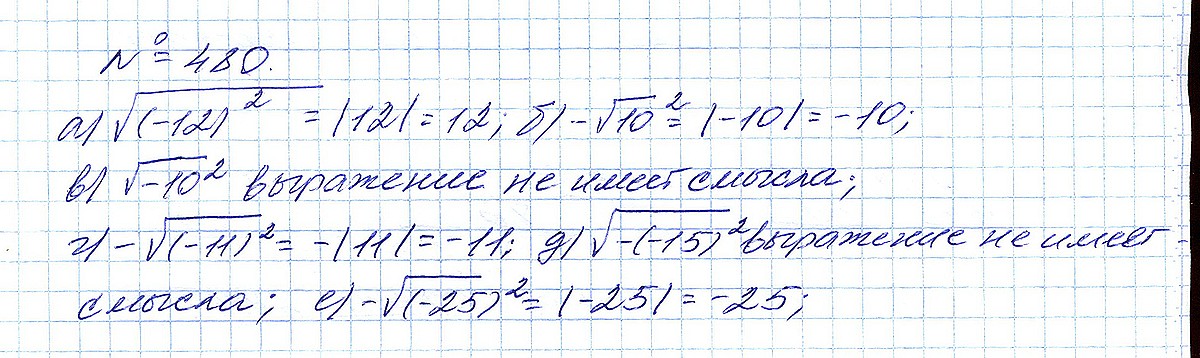 № 480.
а) √(-12)² = |12| = 12; б) -√10² = |-10| = -10;
в) √-10² выражение не имеет смысла;
г) -√(-11)² = -|11| = -11; д) √-(-15)² выражение не имеет
смысла; е) -√(-25)² = |-25| = -25;